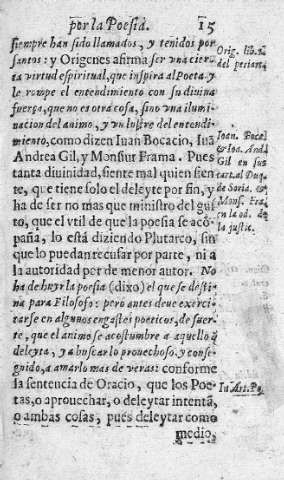 por la Poesia. 15
siempre han sido llamados, y tenidos por
santos: y Origenes afirma ser vna cier-
ta virtud espiritual, que inspira al Poeta y
le rompe el entendimiento con su diuina
fuerça, que no es otra cosa, sino vna ilumi-
nacion del animo, y vn lustre del entendi-
miento, como dizen Iuan Bocacio, Iuã
Andrea Gil, y Monsiur Frama. Pues
tanta diuinidad, siente mal quien sien-
te, que tiene solo el deleyte por fin, y
ha de ser no mas que ministro del gus-
to, que el vtil de que la poesia se acõ-
paña, lo está diziendo Plutarco, sin
que lo puedan recusar por parte, ni a
la autoridad por de menor autor. No
ha de huyr la poesia (dixo) el que se desti-
na para Filosofo: pero antes deue exerci-
tarse en algunos engastes poeticos, de suer-
te, que el animo se acostumbre a aquello q̃
deleyta, y a buscar lo prouechoso, y conse-
guido, a amarlo mas de veras: conforme
la sentencia de Oracio, que los Poe-
tas, o aprouechar, o deleytar intentã,
o ambas cosas, pues deleytar como
medio,
Orig. lib. 1.
del periarc
Ioan. Bocac
& Ioa. And.
Gil en sus
cart. al Duq̃
de Soria. &
Mons. Fra.
en la od. de
la justic.
In Art. Po.